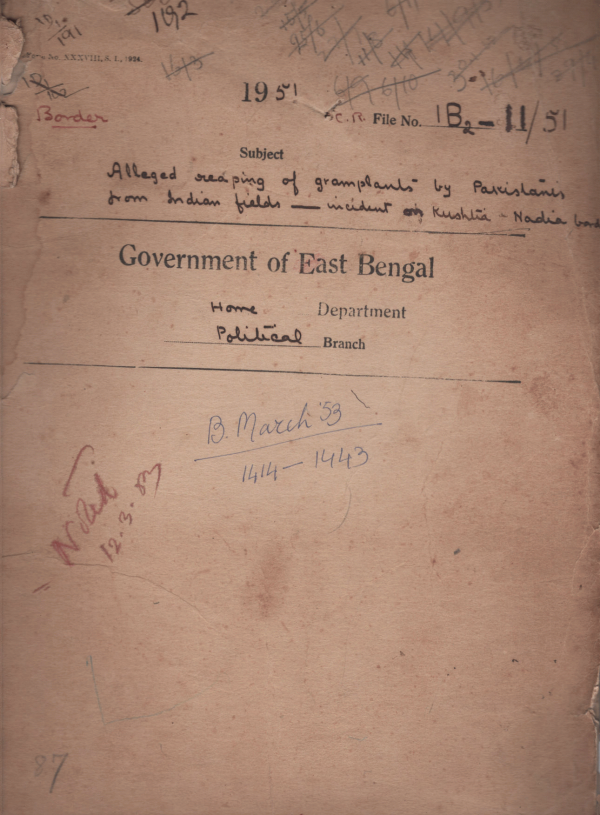 191
1192
Form No. XXXVIII, S. I., 1924.
Border
1951
C.R. File No. 1B2 - 11/51
Subject
Alleged reaping of gramplants by Pakistanis
from Indian fields — incident on Kushtia - Nadia bord
Government of East Bengal
Home Department
Political Branch
B. March '53
1414 - 1443
Noted
12.3.53
87